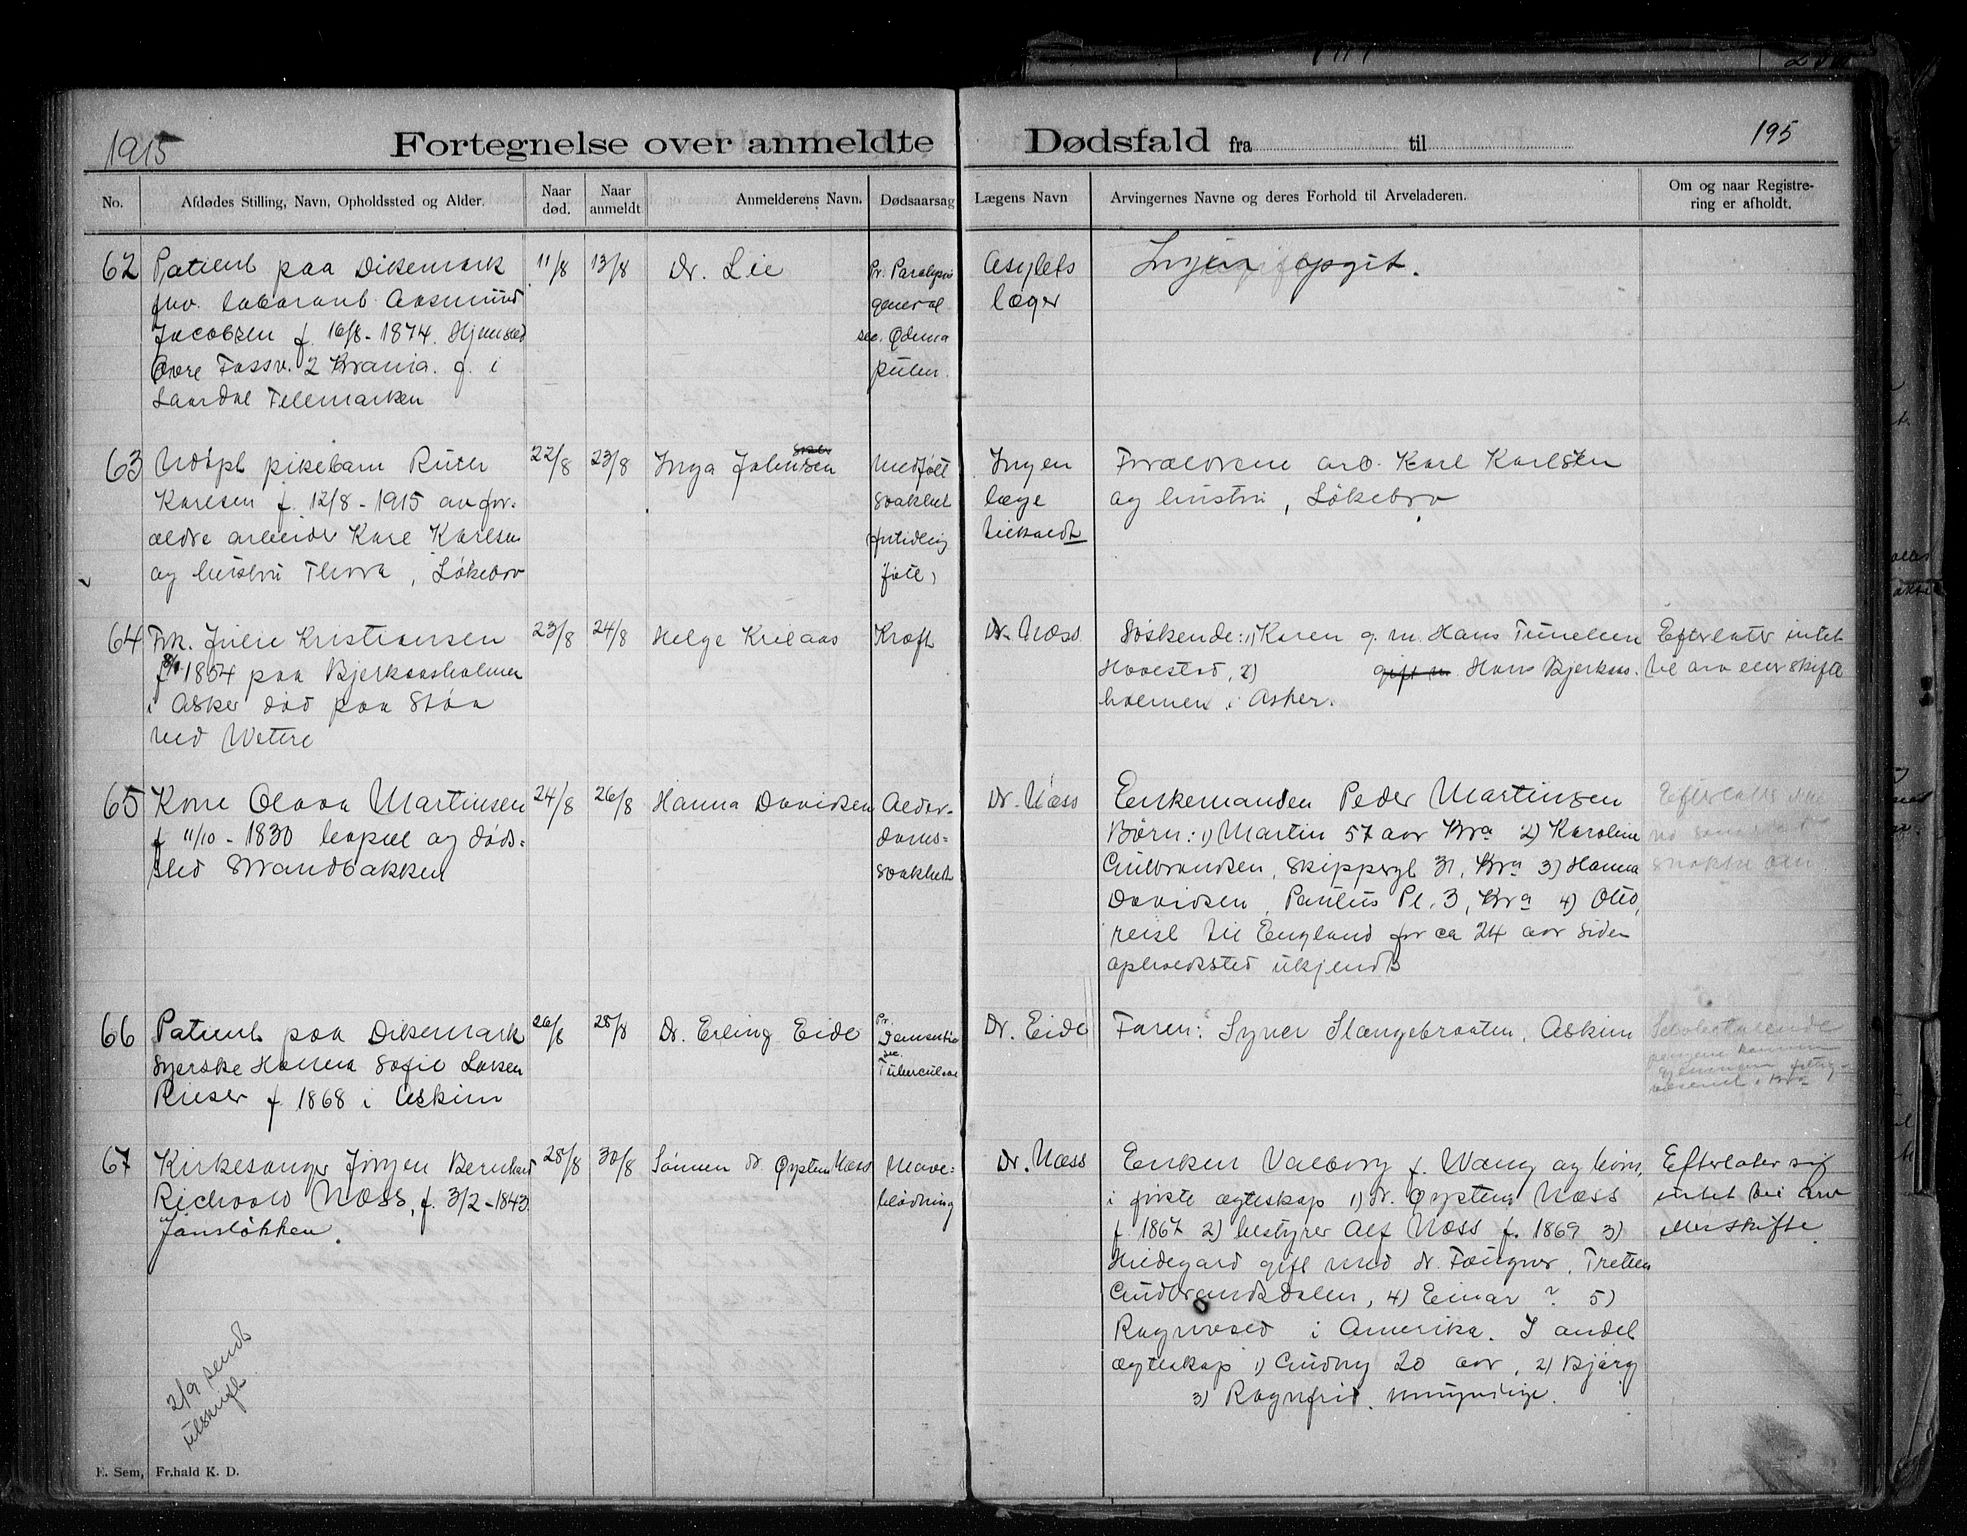 1915
Fortegnelse over anmeldte Dødsfald fra til
195
No.
Afdødes Stilling, Navn, Opholdssted og Alder.
Naar død.
Naar anmeldt
Anmelderens Navn.
Dødsaarsag
Lægens Navn
Arvingernes Navne og deres Forhold til Arveladeren.
Om og naar Registre-
ring er afholdt.
62
Patient paa Dikemark
fhv. laborant Aasmund
Jacobsen f. 16/8 - 1874. Hjemsted
Øvre Fossv. 2 Krania. f. i
Laardal Telemarken
11/8
13/8
Dr. Lie
Pr. Paralysis
general
sec. Ødema
pulm.
Asylets
læger
Ingen opgit.
63
Udøpt pikebarn
Karlsen f. 12/8 - 1915 av for-
ældre arbeider Karl Karlsen
og hustru Thora, Løkebro
22/8
23/8
Inga Johnsen
Medfødt
svakhet
for tidlig
født
Ingen
læge
tilkaldt
Forældrene arb. Karl Karlsen
og hustru, Løkebro
64
Frk. Julie Kristiansen
1854 paa Bjerkaasholmen
i Asker død paa Støa
ved Vettre
23/8
24/8
Helge Krilaas
Kræft
Dr. Næss
Søskende: 1) Karen g. m. Hans
2) gift m. Hans Bjerkaas-
holmen i Asker.
Efterlater intet
til arv eller skifte
65
Kone Olava Martinsen
f 11/10 - 1830 bopæl og døds-
sted Strandbakken
24/8
26/8
Hanna Davidsen
Alder-
doms-
svakhet
Dr. Næss
Enkemanden Peder Martinsen
Børn: 1) Martin 57 aar Kra 2) Karoline
Gulbrandsen, Skippergt 31, Kra 3) Hanna
Davidsen, Paulus Pl. 3, Kra 4) Olto,
reist til England for ca 24 aar siden
opholdssted ukjendt
66
Patient paa Dikemark
syerske Hanna Sofie Larsen
Ruser f. 1868 i Askim
26/8
28/8
Dr. Erling Eide
Pr.
Dementia
sec.
Tuberculose
Dr. Eide
Faren: Syver Slangebraaten, Askim
67
Kirkesanger Jørgen Bernhard
Richvold Næss, f. 3/2 - 1843.
Jansløkken.
28/8
30/8
Sønnen dr. Øysten Næss
Mave-
blødning
Dr. Næss
Enken Valborg f. Wang og børn,
i første ægteskap 1) dr. Øysten Næss
f 1867 2) bestyrer Alf Næss f. 1869 3)
Hildegard gift med dr. Faugner, Tretten
Gudbrandsdalen, 4) Einar ? 5)
Ragnvald i Amerika. I andet
ægteskap 1) Gudny 20 aar, 2) Bjørg
3) Ragnfrid. umyndige.
Efterlater sig
intet til arv
eller skifte.
2/9 sendt
utskrift
E. Sem, Fr.hald K. D.